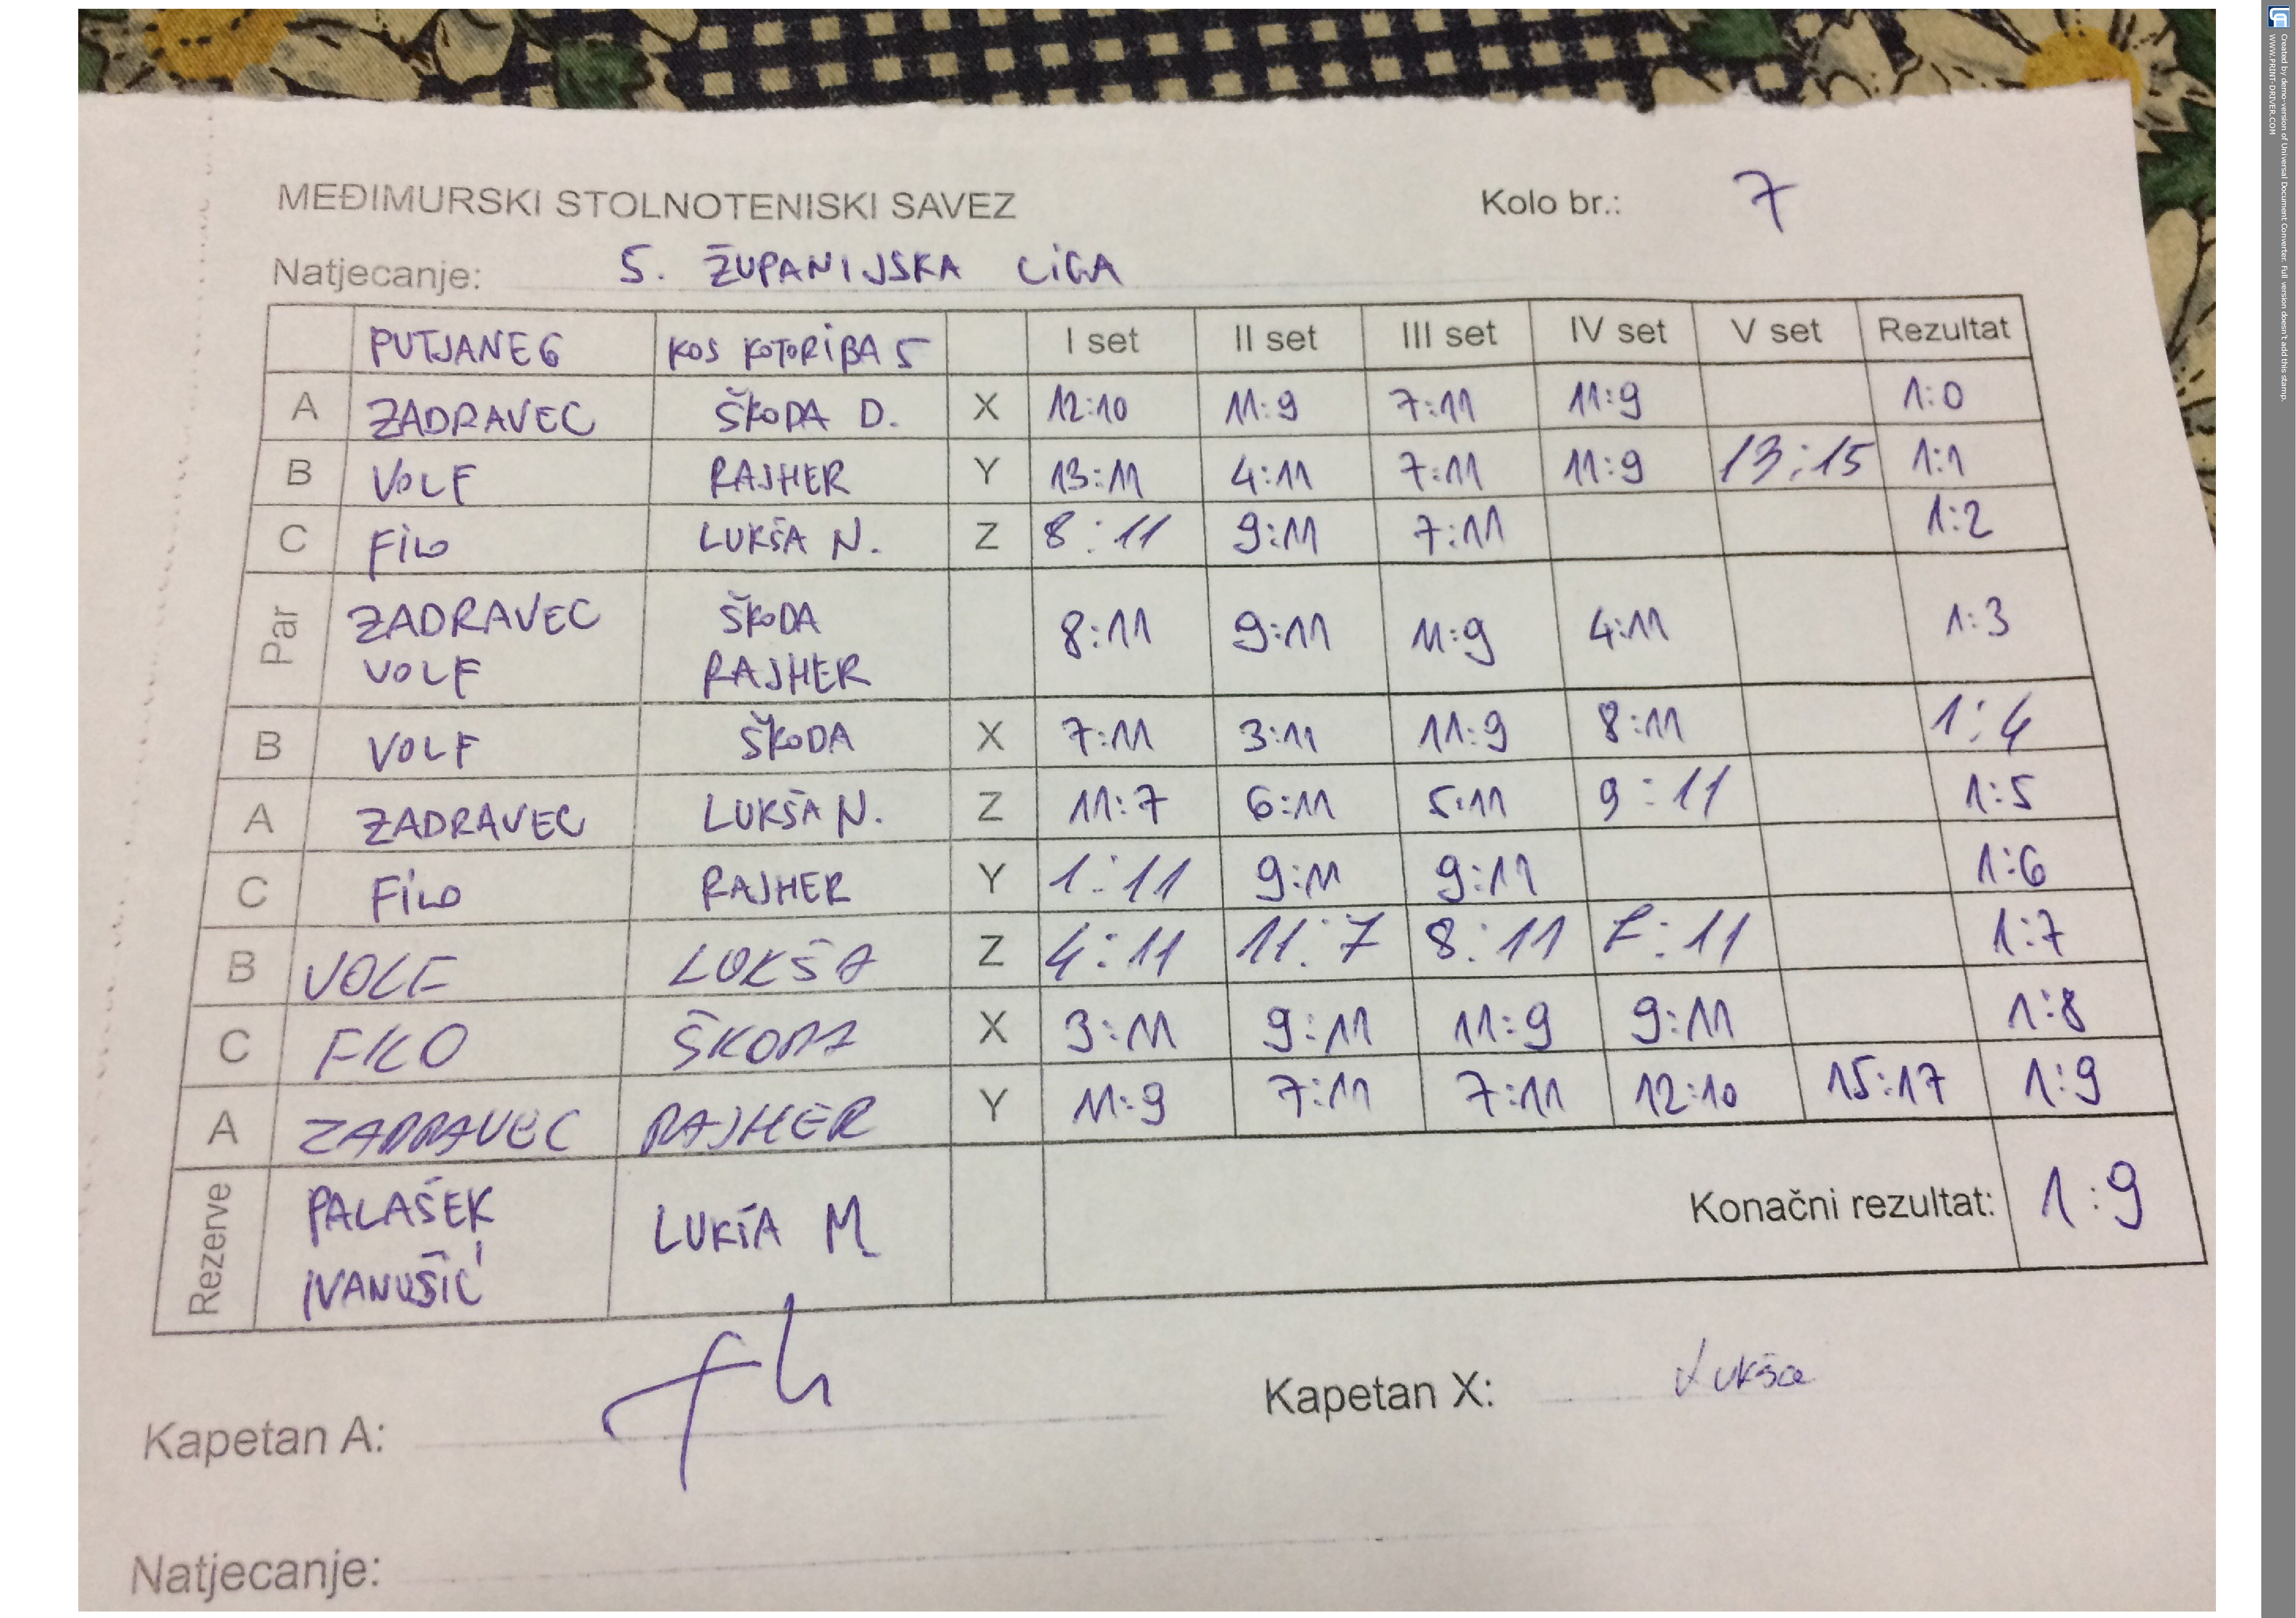 MEĐIMURSKI STOLNOTENISKI SAVEZ Kolo br.: 7
Natjecanje: 5. ŽUPANIJSKA LIGA
PUTJANE 6 KOS KOTORIBA 5 I set II set III set IV set V set Rezultat
A ZADRAVEC ŠKODA D. X 12:10 11:9 7:11 11:9 1:0
B VOLF RAJHER Y 13:11 4:11 7:11 11:9 13:15 1:1
C FILO LUKŠA N. Z 8:11 9:11 7:11 1:2
Par ZADRAVEC ŠKODA 8:11 9:11 11:9 4:11 1:3
VOLF RAJHER
B VOLF ŠKODA X 7:11 3:11 11:9 8:11 1:4
A ZADRAVEC LUKŠA N. Z 11:7 6:11 5:11 9:11 1:5
C FILO RAJHER Y 1:11 9:11 9:11 1:6
B VOLF LUKŠA Z 4:11 11:7 8:11 7:11 1:7
C FILO ŠKODA X 3:11 9:11 11:9 9:11 1:8
A ZADRAVEC RAJHER Y 11:9 7:11 7:11 12:10 15:17 1:9
Rezerve PALAŠEK LUKŠA M. Konačni rezultat: 1:9
IVANUŠIĆ
Kapetan A: Kapetan X: Lukša
Natjecanje:
Created by demo-version of Universal Document Converter. Full version doesn't add this stamp.
WWW.PRINT-DRIVER.COM